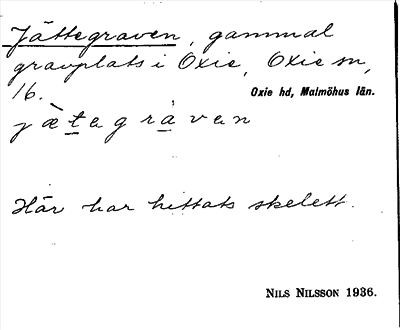 Jättegraven, gammal
gravplats i Oxie, Oxie sn,
16. Oxie hd, Malmöhus län.
jæ̀tagrávan
Här har hittats skelett.
NILS NILSSON 1936.